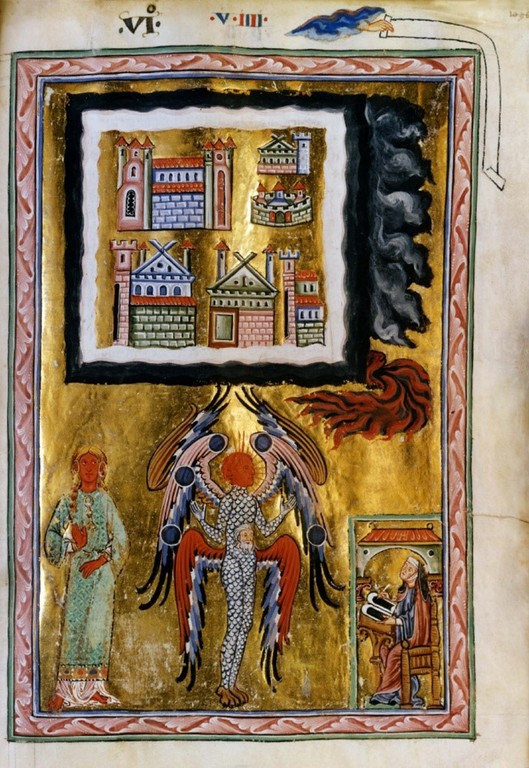 ·vi· ·v·iiii·